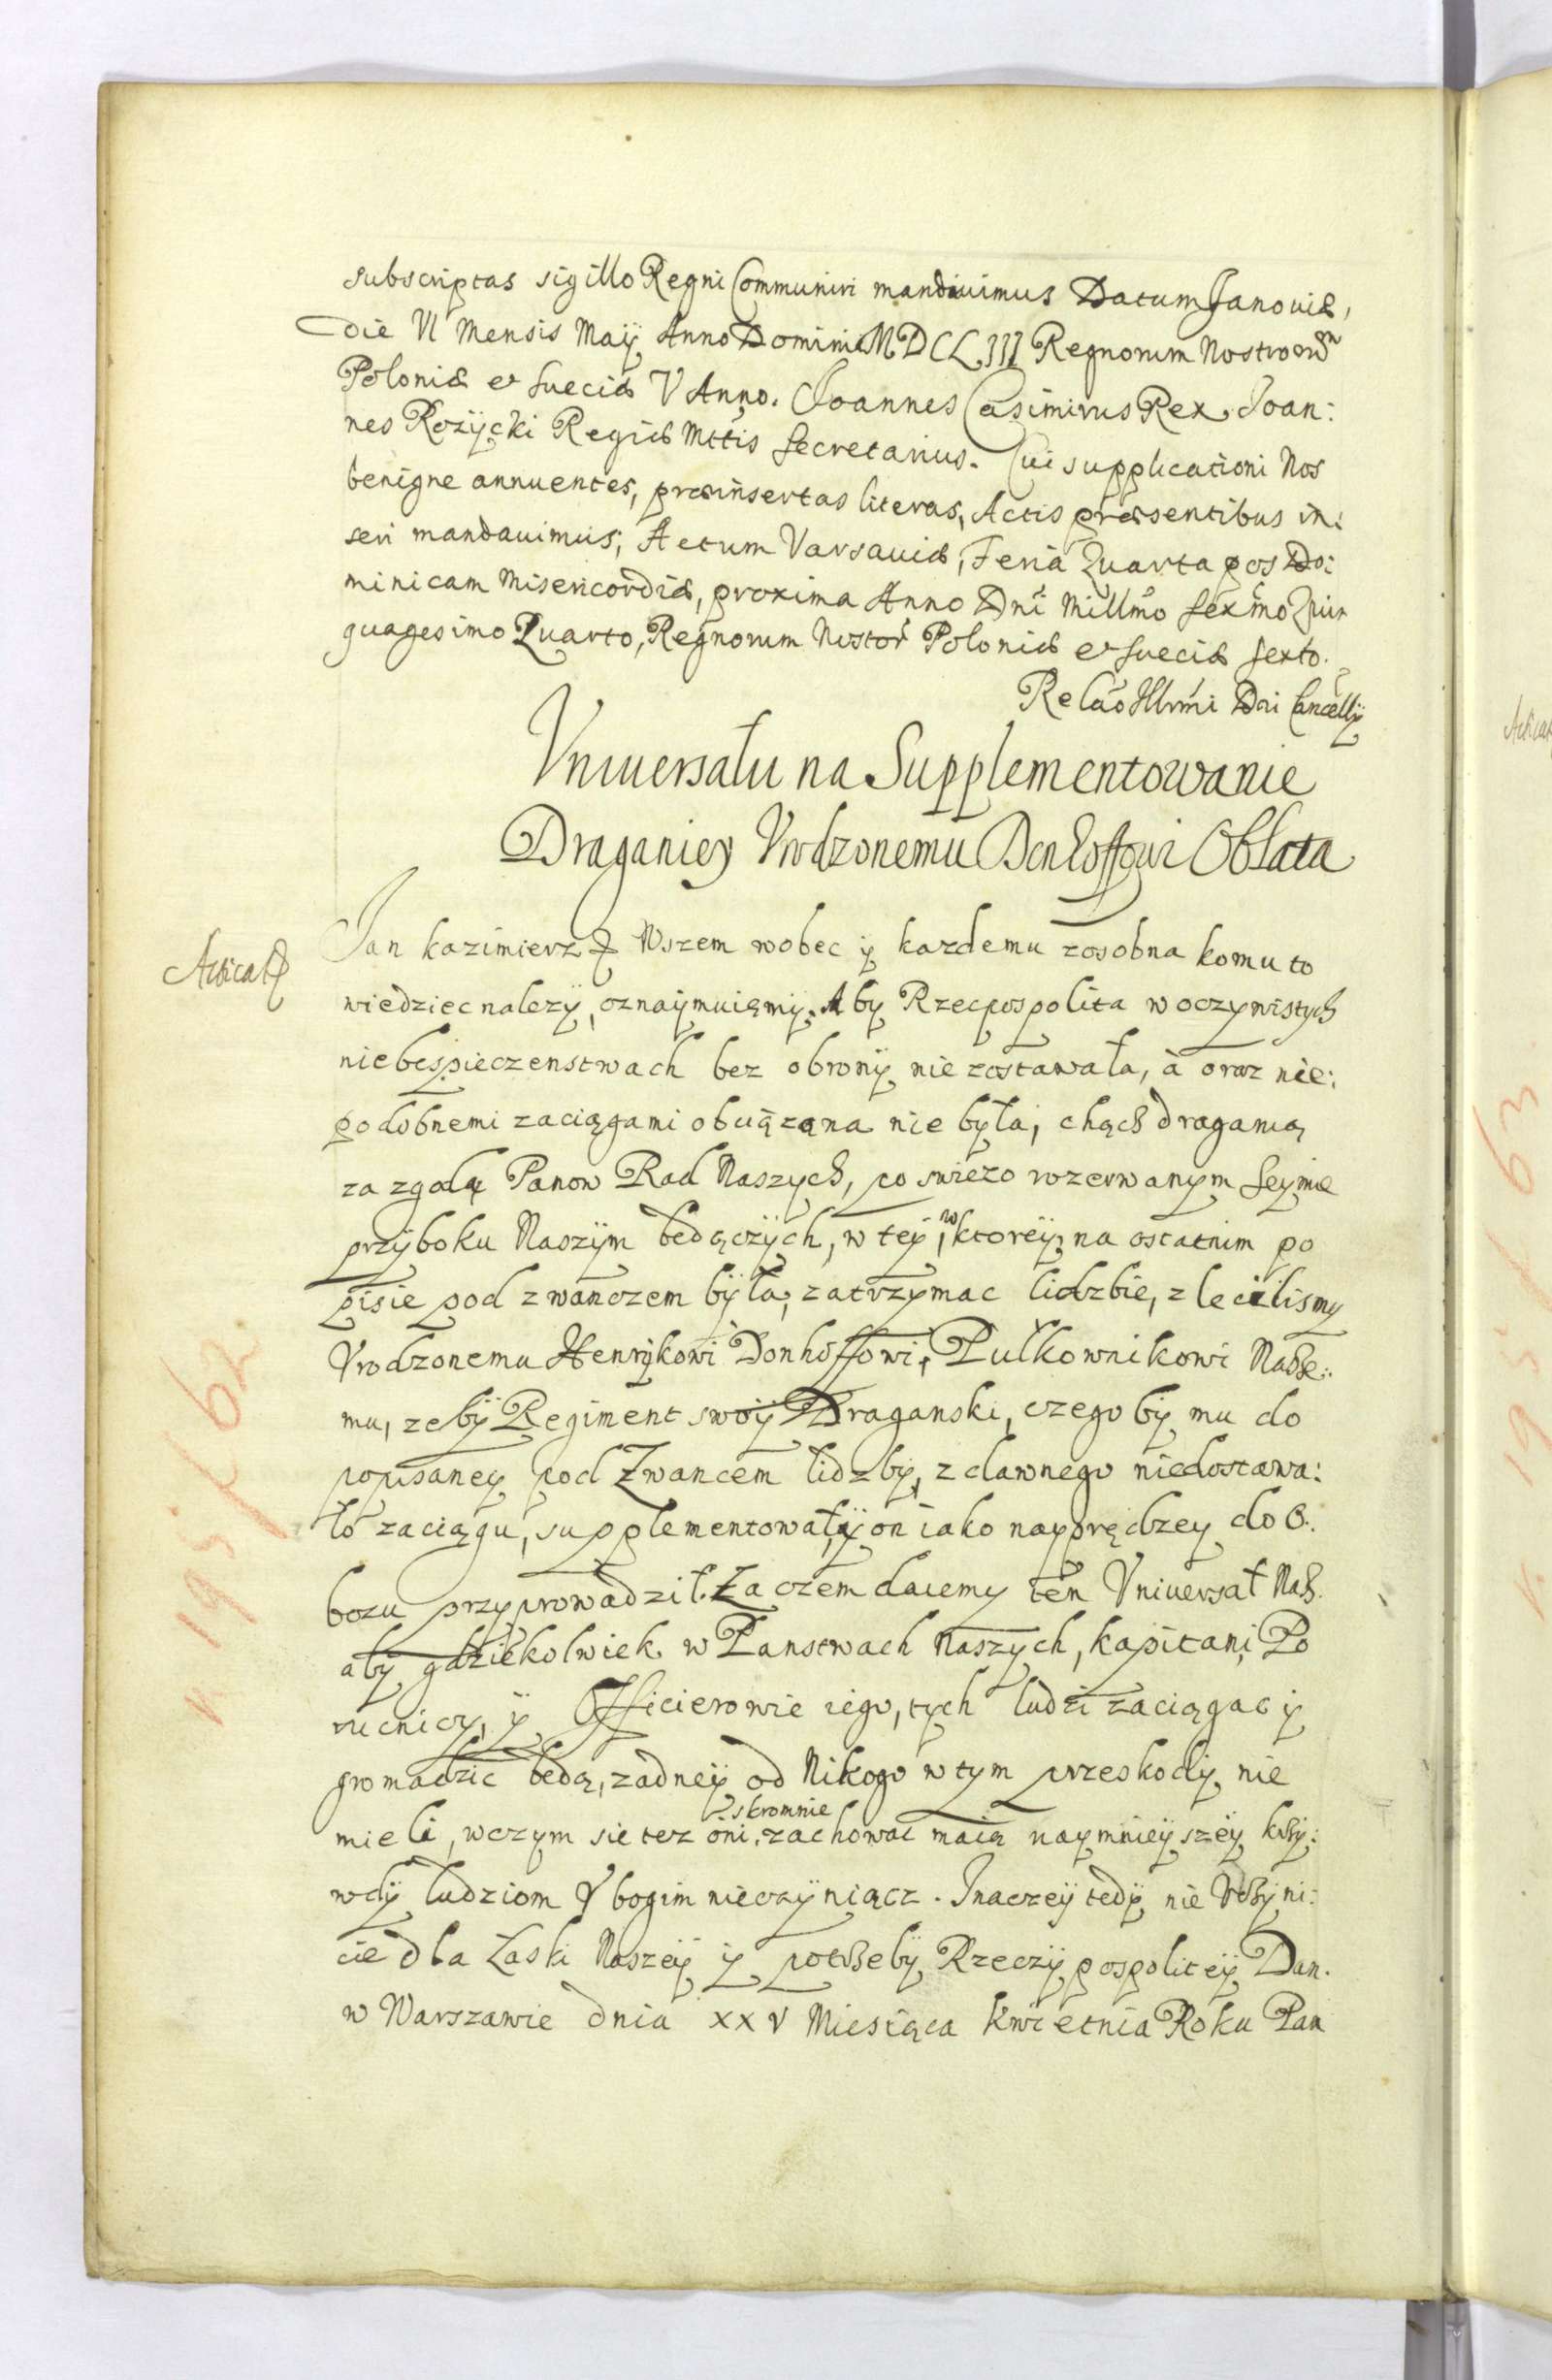 subscriptas sigillo Regni Communiri mandauimus Datum Janouiæ,
die VI Mensis Maÿ Anno Domini MDCLIII Regnorum Nostrorum
Poloniæ et Sueciæ V Anno. Joannes Casimirus Rex. Joan:
nes Rozÿcki Regiæ Mttis Secretarius. Cui supplicationi Nos
benigne annuentes, præinsertas literas, Actis præsentibus in:
seri mandauimus, Actum Varsauiæ, Feria Quarta pos Do:
minicam Misericordiæ, proxima Anno Dni Millmo Sexmo Quin
quagesimo Quarto, Regnorum Nostor Poloniæ et Sueciæ Sexto.
Relao Illrmi Dni Cancellÿ
Vniuersału na Supplementowanie
Draganiey Vrodzonemu Denhoffowi Oblata
Jan Kazimierz Wszem wobec ÿ kazdemu zosobna komu to
wiedziec nalezÿ, oznaÿmuiemÿ. Aby Rzecpospolita w oczywistych
niebespieczenstwach bez obronÿ nie zostawała, à oraz nie:
podobnemi zaciągami obciązana nie była, chąch draganią
za zgodą Panow Rad Naszych, po swiezo rozerwanym Seymie
przy boku Naszÿm bedączÿch, w teÿ, w ktoreÿ na ostatnim po
pisie pod zwanczem bÿła, zatrzymac lidzbie, zlecilismy
Vrodzonemu Henrÿkowi Donhoffowi, Pułkownikowi Nasze:
mu, zebÿ Regiment swoÿ Draganski, czego by mu do
popisaneÿ pod Zwancem lidzbÿ, z dawnego niedostawa:
ło zaciągu, supplementował, ÿ on iako naÿprędzeÿ do o:
bozu przyprowadził. Zaczem daiemy ten Vniuersał Nasz
abÿ gdziekolwiek w Panstwach Naszych, kapitani Po
rucnicy, ÿ Officierowie iego, tych ludzi zaciągac ÿ
gromadzic bedą, zadneÿ od Nikogo w tym przeskodÿ nie
mieli, w czym sie tez oni, skromnie zachowac maią naymnieÿszeÿ krzy:
wdÿ ludziom Vbogim nieczÿniącz. Inaczeÿ tedÿ nie Vczÿni:
cie dla Łaski Naszeÿ ÿ potrzebÿ Rzeczÿpospoliteÿ Dan.
w Warszawie dnia XXV Miesiąca Kwietnia Roku Pan